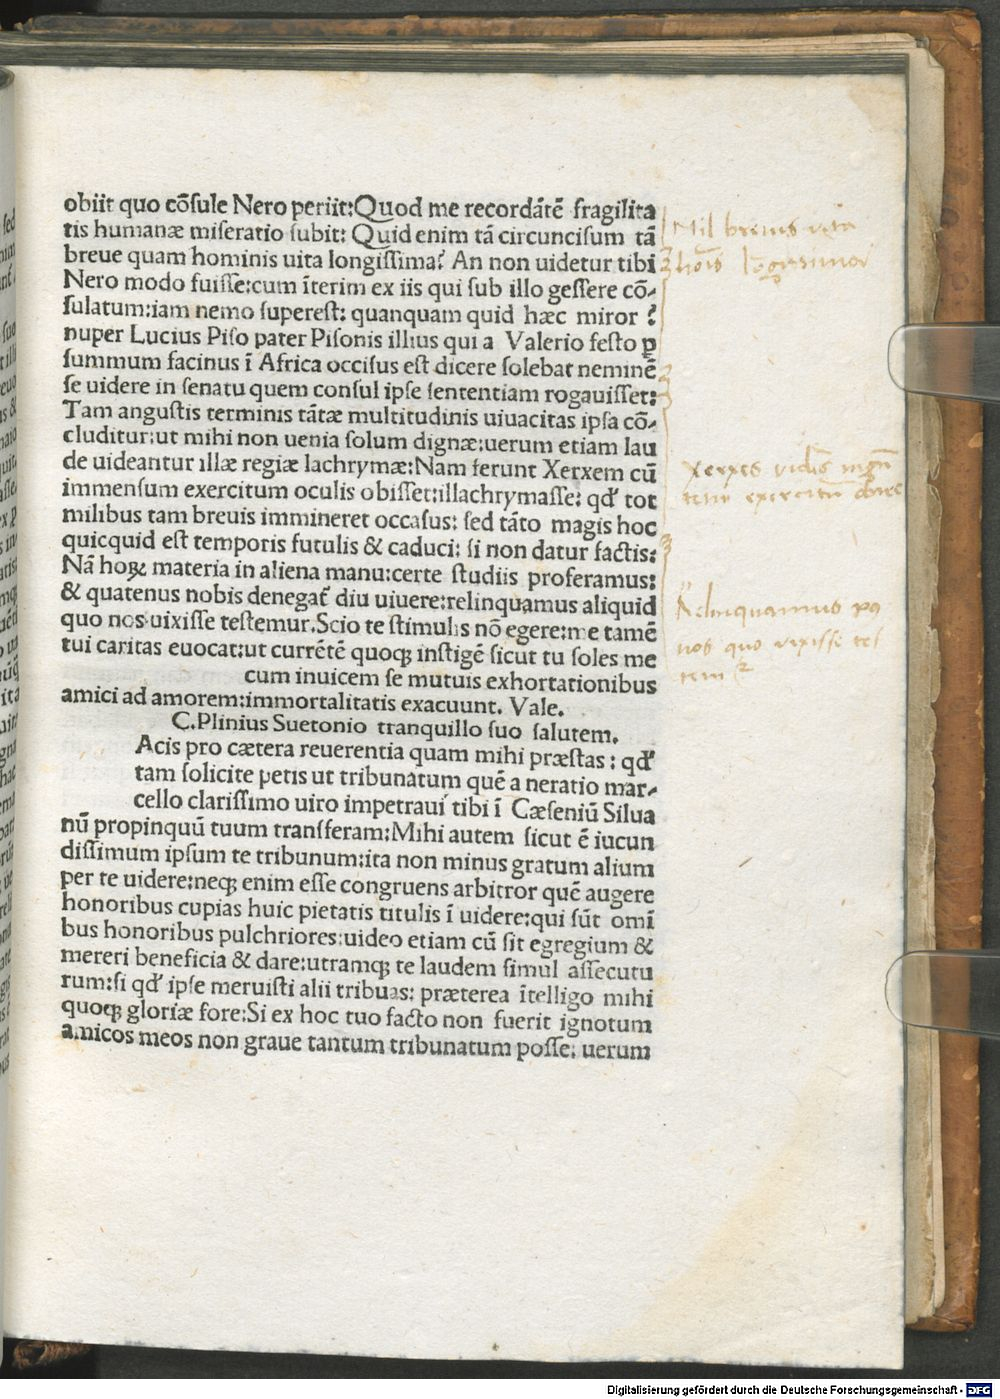 obiit quo cōſule Nero periit:Quod me recordātē fragilita
tis humanæ miſeratio ſubit: Quid enim tā circunciſum tā
breue quam hominis uita longiſſima? An non uidetur tibi
Nero modo fuiſſe:cum īterim ex iis qui ſub illo geſſere cō-
ſulatum:iam nemo ſupereſt: quanquam quid hæc miror ?
nuper Lucius Piſo pater Piſonis illius qui a Valerio feſto ꝑ
ſummum facinus ī Africa occiſus eſt dicere ſolebat neminē
ſe uidere in ſenatu quem conſul ipſe ſententiam rogauiſſet:
Tam anguſtis terminis tātæ multitudinis uiuacitas ipſa cō-
cluditur:ut mihi non uenia ſolum dignæ:uerum etiam lau
de uideantur illæ regiæ lachrymæ:Nam ferunt Xerxem cū
immenſum exercitum oculis obiſſet:illachrymaſſe: qđ tot
milibus tam breuis immineret occaſus: ſed tāto magis hoc
quicquid eſt temporis futulis & caduci: ſi non datur factis:
Nā hoꝝ materia in aliena manu:certe ſtudiis proferamus:
& quatenus nobis denegat̄ diu uiuere:relinquamus aliquid
quo nos uixiſſe teſtemur.Scio te ſtimulis nō egere:me tamē
tui caritas euocat:ut currētē quoqꝫ inſtigē ſicut tu ſoles me
cum inuicem ſe mutuis exhortationibus
amici ad amorem:immortalitatis exacuunt. Vale.
C.Plinius Suetonio tranquillo ſuo ſalutem.
Acis pro cætera reuerentia quam mihi præſtas : qđ
tam ſolicite petis ut tribunatum quē a neratio mar-
cello clariſſimo uiro impetraui tibi ī Cæſeniū Silua
nū propinquū tuum transferam:Mihi autem ſicut ē iucun
diſſimum ipſum te tribunum:ita non minus gratum alium
per te uidere:neqꝫ enim eſſe congruens arbitror quē augere
honoribus cupias huic pietatis titulis ī uidere:qui ſūt omī
bus honoribus pulchriores:uideo etiam cū ſit egregium &
mereri beneficia & dare:utramqꝫ te laudem ſimul aſſecutu
rum:ſi qđ ipſe meruiſti alii tribuas: præterea ītelligo mihi
quoqꝫ gloriæ fore:Si ex hoc tuo facto non fuerit ignotum
amicos meos non graue tantum tribunatum poſſe: uerum
Nil brevius vita
Xerxes
Relinquamus
nos quo vixisse tes
Digitalisierung gefördert durch die Deutsche Forschungsgemeinschaft - DFG